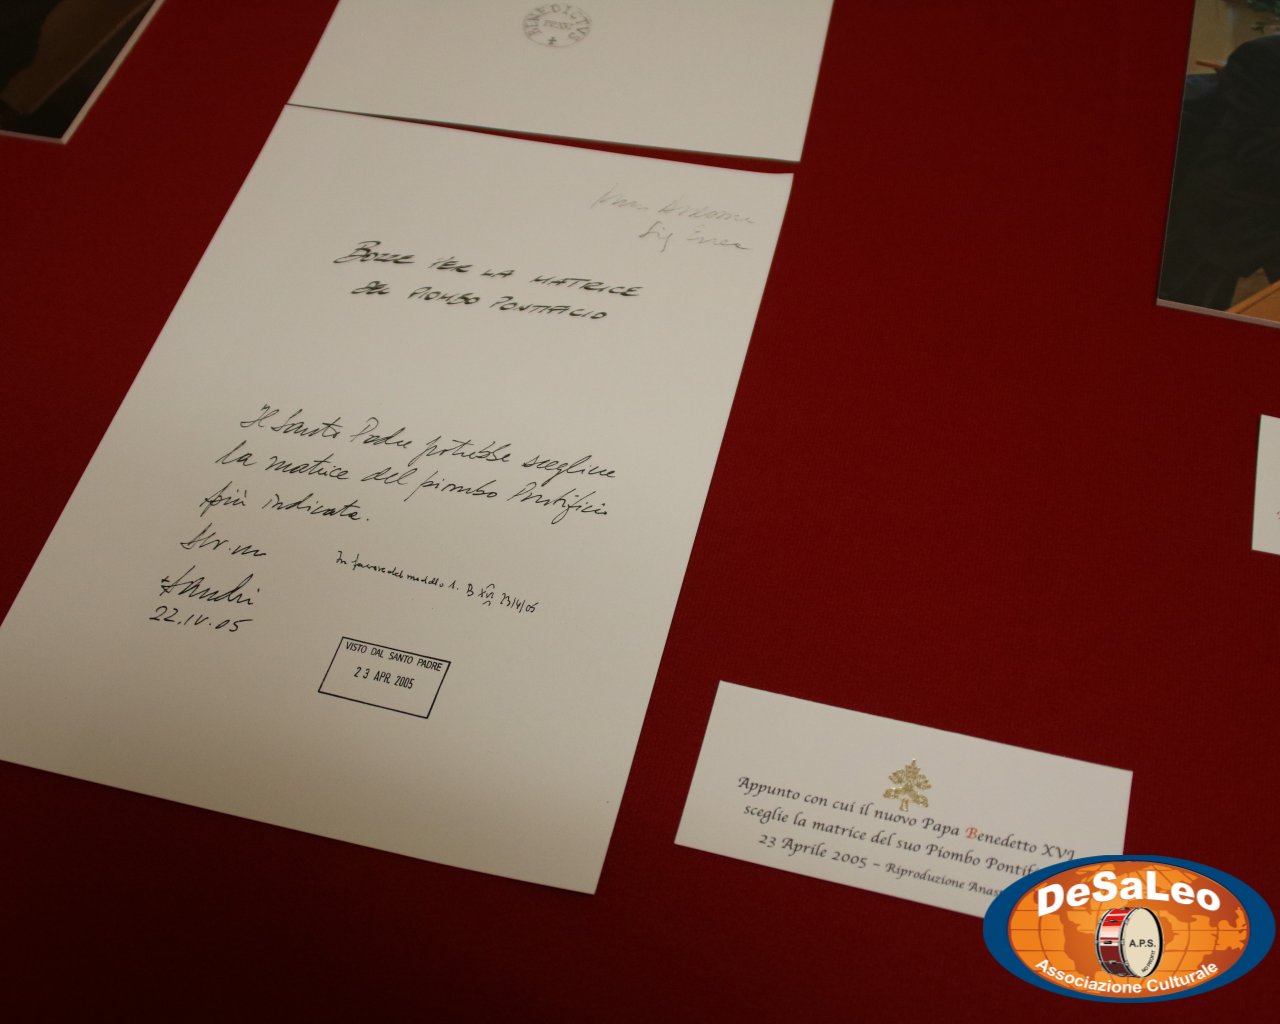 BENEDICTVS
BOZZE PER LA MATRICE
DEL PIOMBO PONTIFICIO
Il Santo Padre potrebbe scegliere
la matrice del piombo Pontificio
più indicata.
Sandri
22.IV.05
In favore del modello 1. B XVI 23/4/05
VISTO DAL SANTO PADRE
23 APR. 2005
Appunto con cui il nuovo Papa Benedetto XVI
sceglie la matrice del suo Piombo
23 Aprile 2005 – Riproduzione
DeSaLeo
A.P.S.
Associazione Culturale